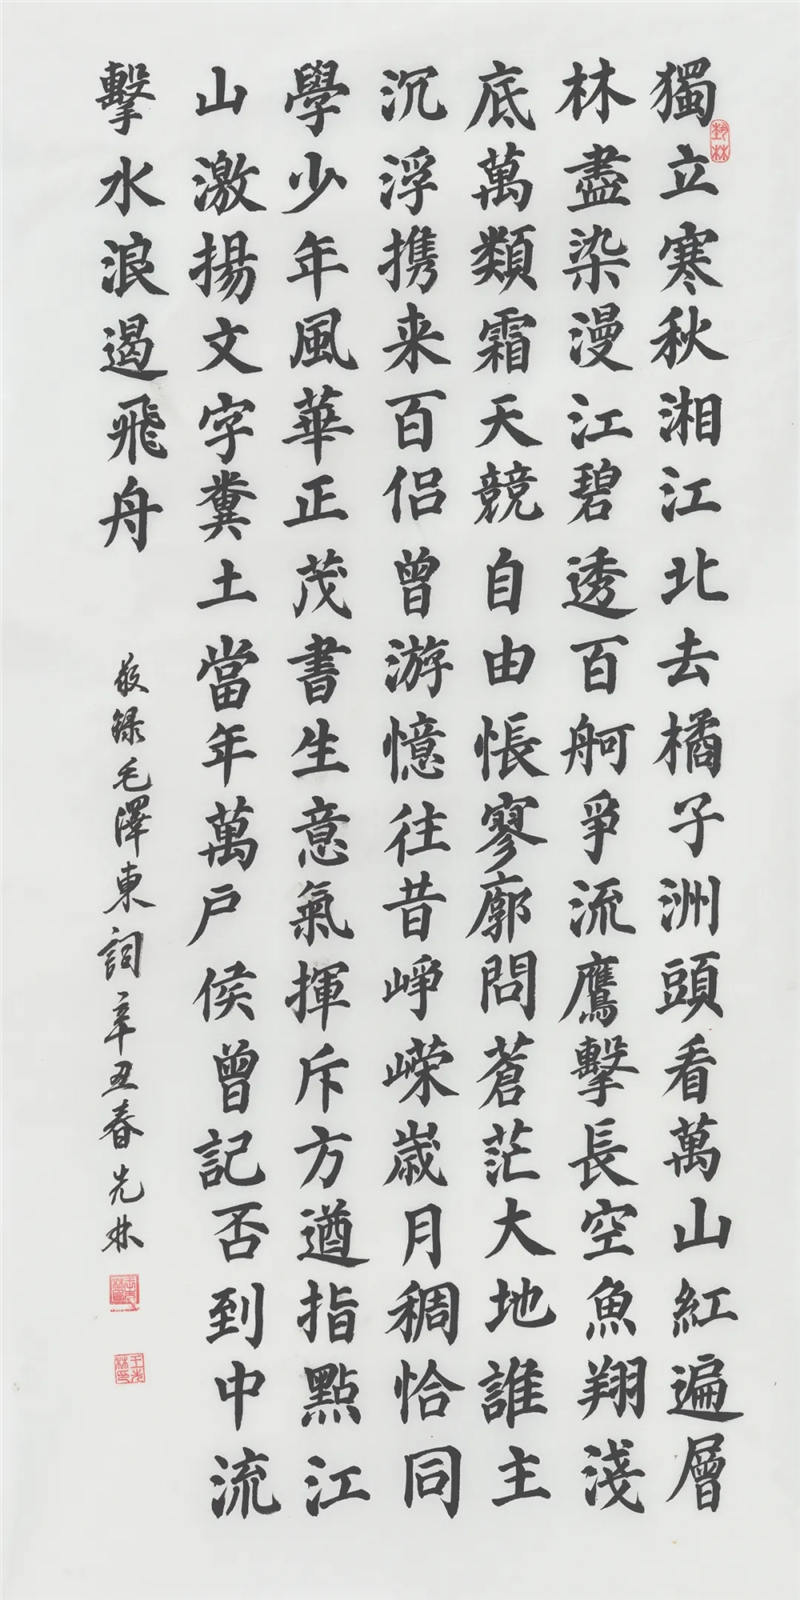 獨立寒秋湘江北去橘子洲頭看萬山紅遍層
林盡染漫江碧透百舸爭流鷹擊長空魚翔淺
底萬類霜天競自由悵寥廓問蒼茫大地誰主
沉浮携来百侣曾游憶往昔崢嵘歲月稠恰同
學少年風華正茂書生意氣揮斥方遒指點江
山激揚文字糞土當年萬户侯曾記否到中流
擊水浪遏飛舟
敬録毛澤東詞辛丑春先林